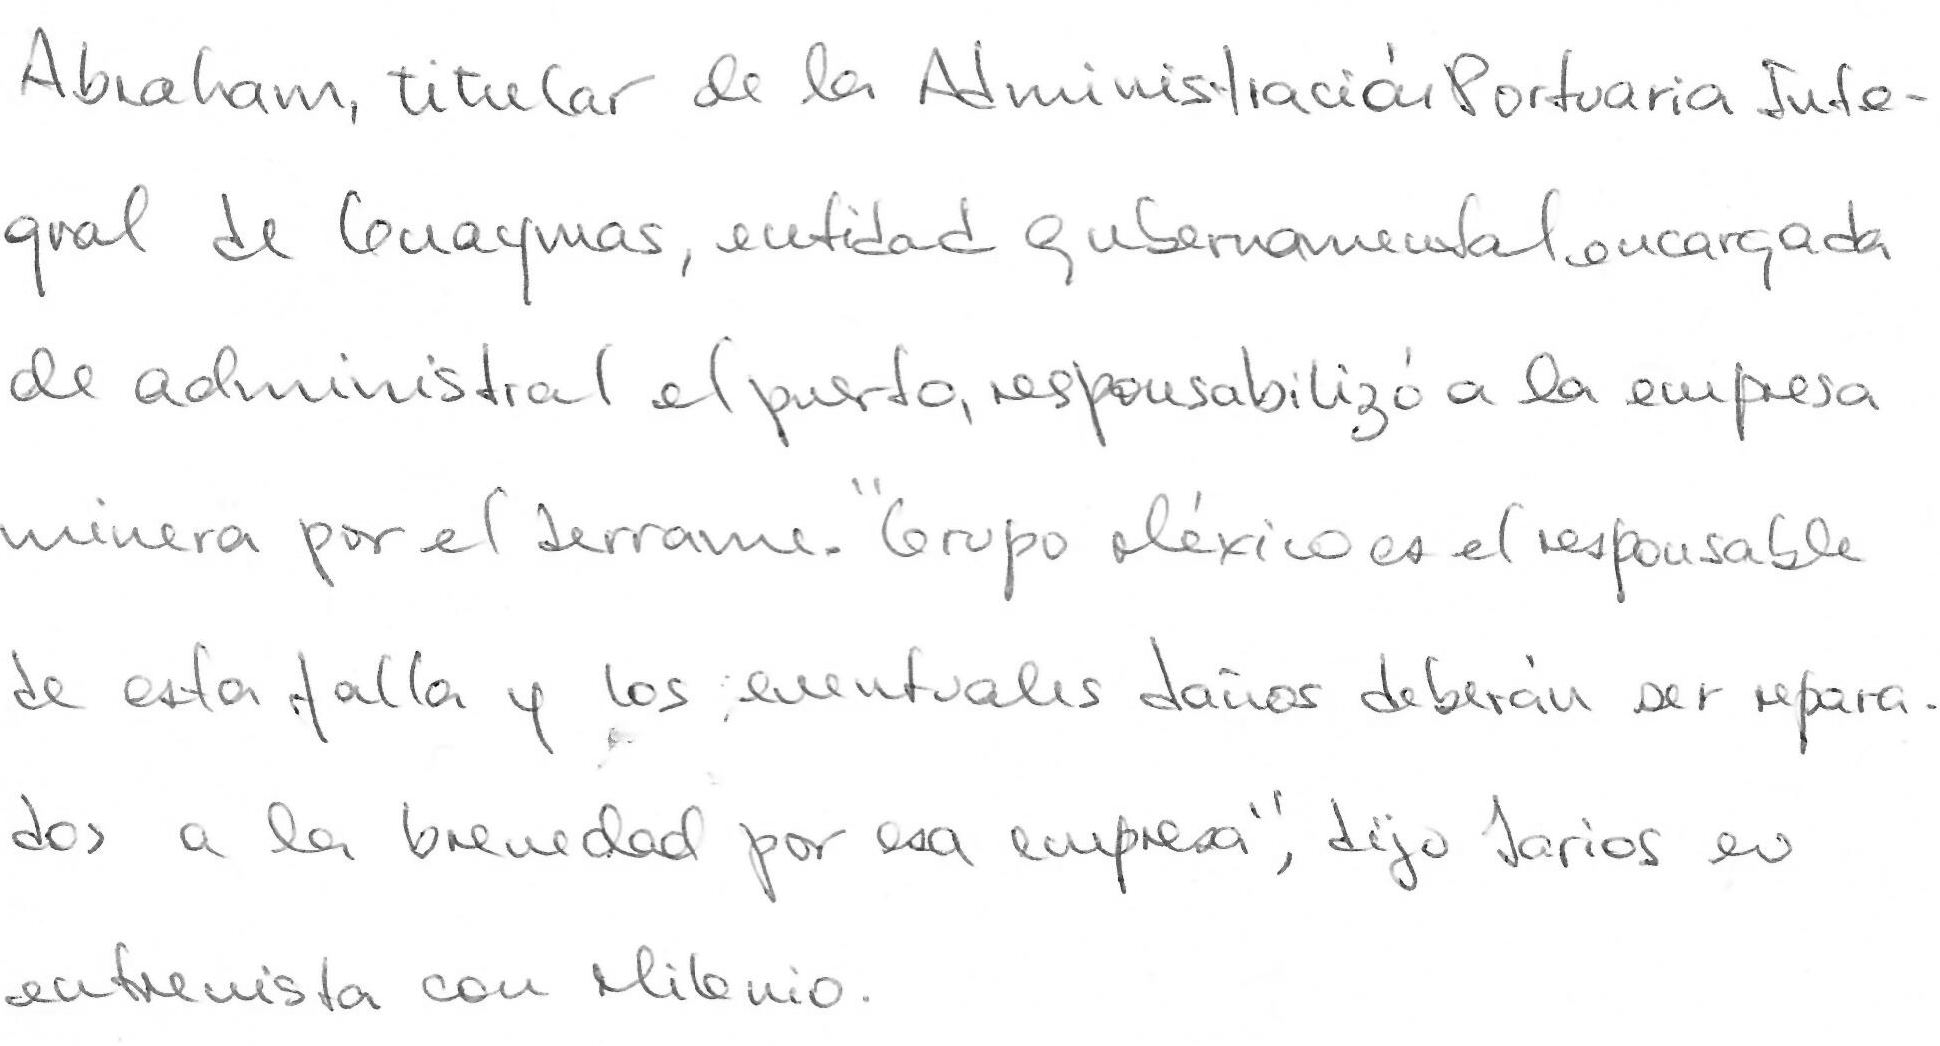 Abraham, titular de la Administración Portuaria Inte-
gral de Guaymas, entidad gubernamental encargada
de administral el puerto, responsabilizó a la empresa
minera por el derrame. "Grupo México es el responsable
de esta falla y los eventuales daños deberán ser repara-
dos a la brevedad por esa empresa", dijo Jarios en
entrevista con Milenio.